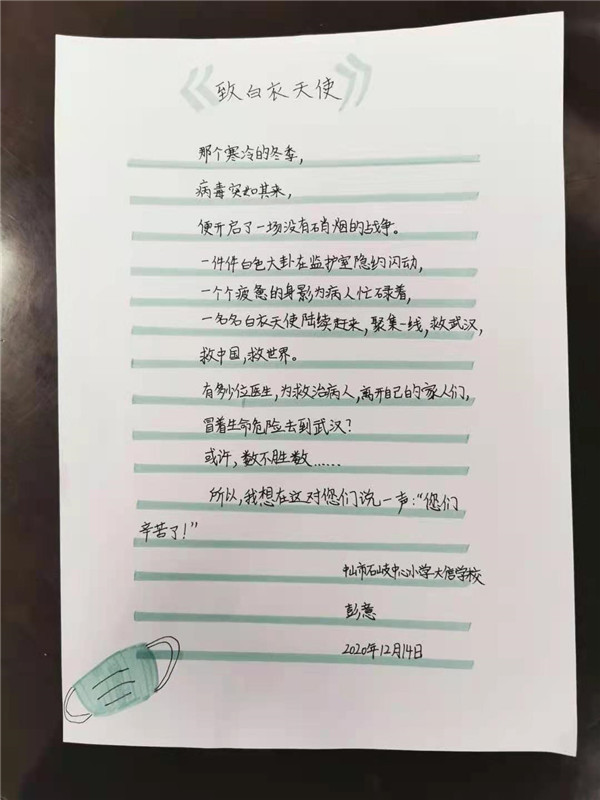 《致白衣天使》
那个寒冷的冬季，
病毒突如其来，
便开启了一场没有硝烟的战争。
一件件白色大卦在监护室隐约闪动，
一个个疲惫的身影为病人忙碌着，
一名名白衣天使陆续赶来，聚集一线，救武汉，
救中国，救世界。
有多少位医生，为救治病人，离开自己的家人们，
冒着生命危险去到武汉？
或许，数不胜数……
所以，我想在这对您们说一声：“您们
辛苦了！”
中山市石岐中心小学大信学校
彭意
2020年12月14日